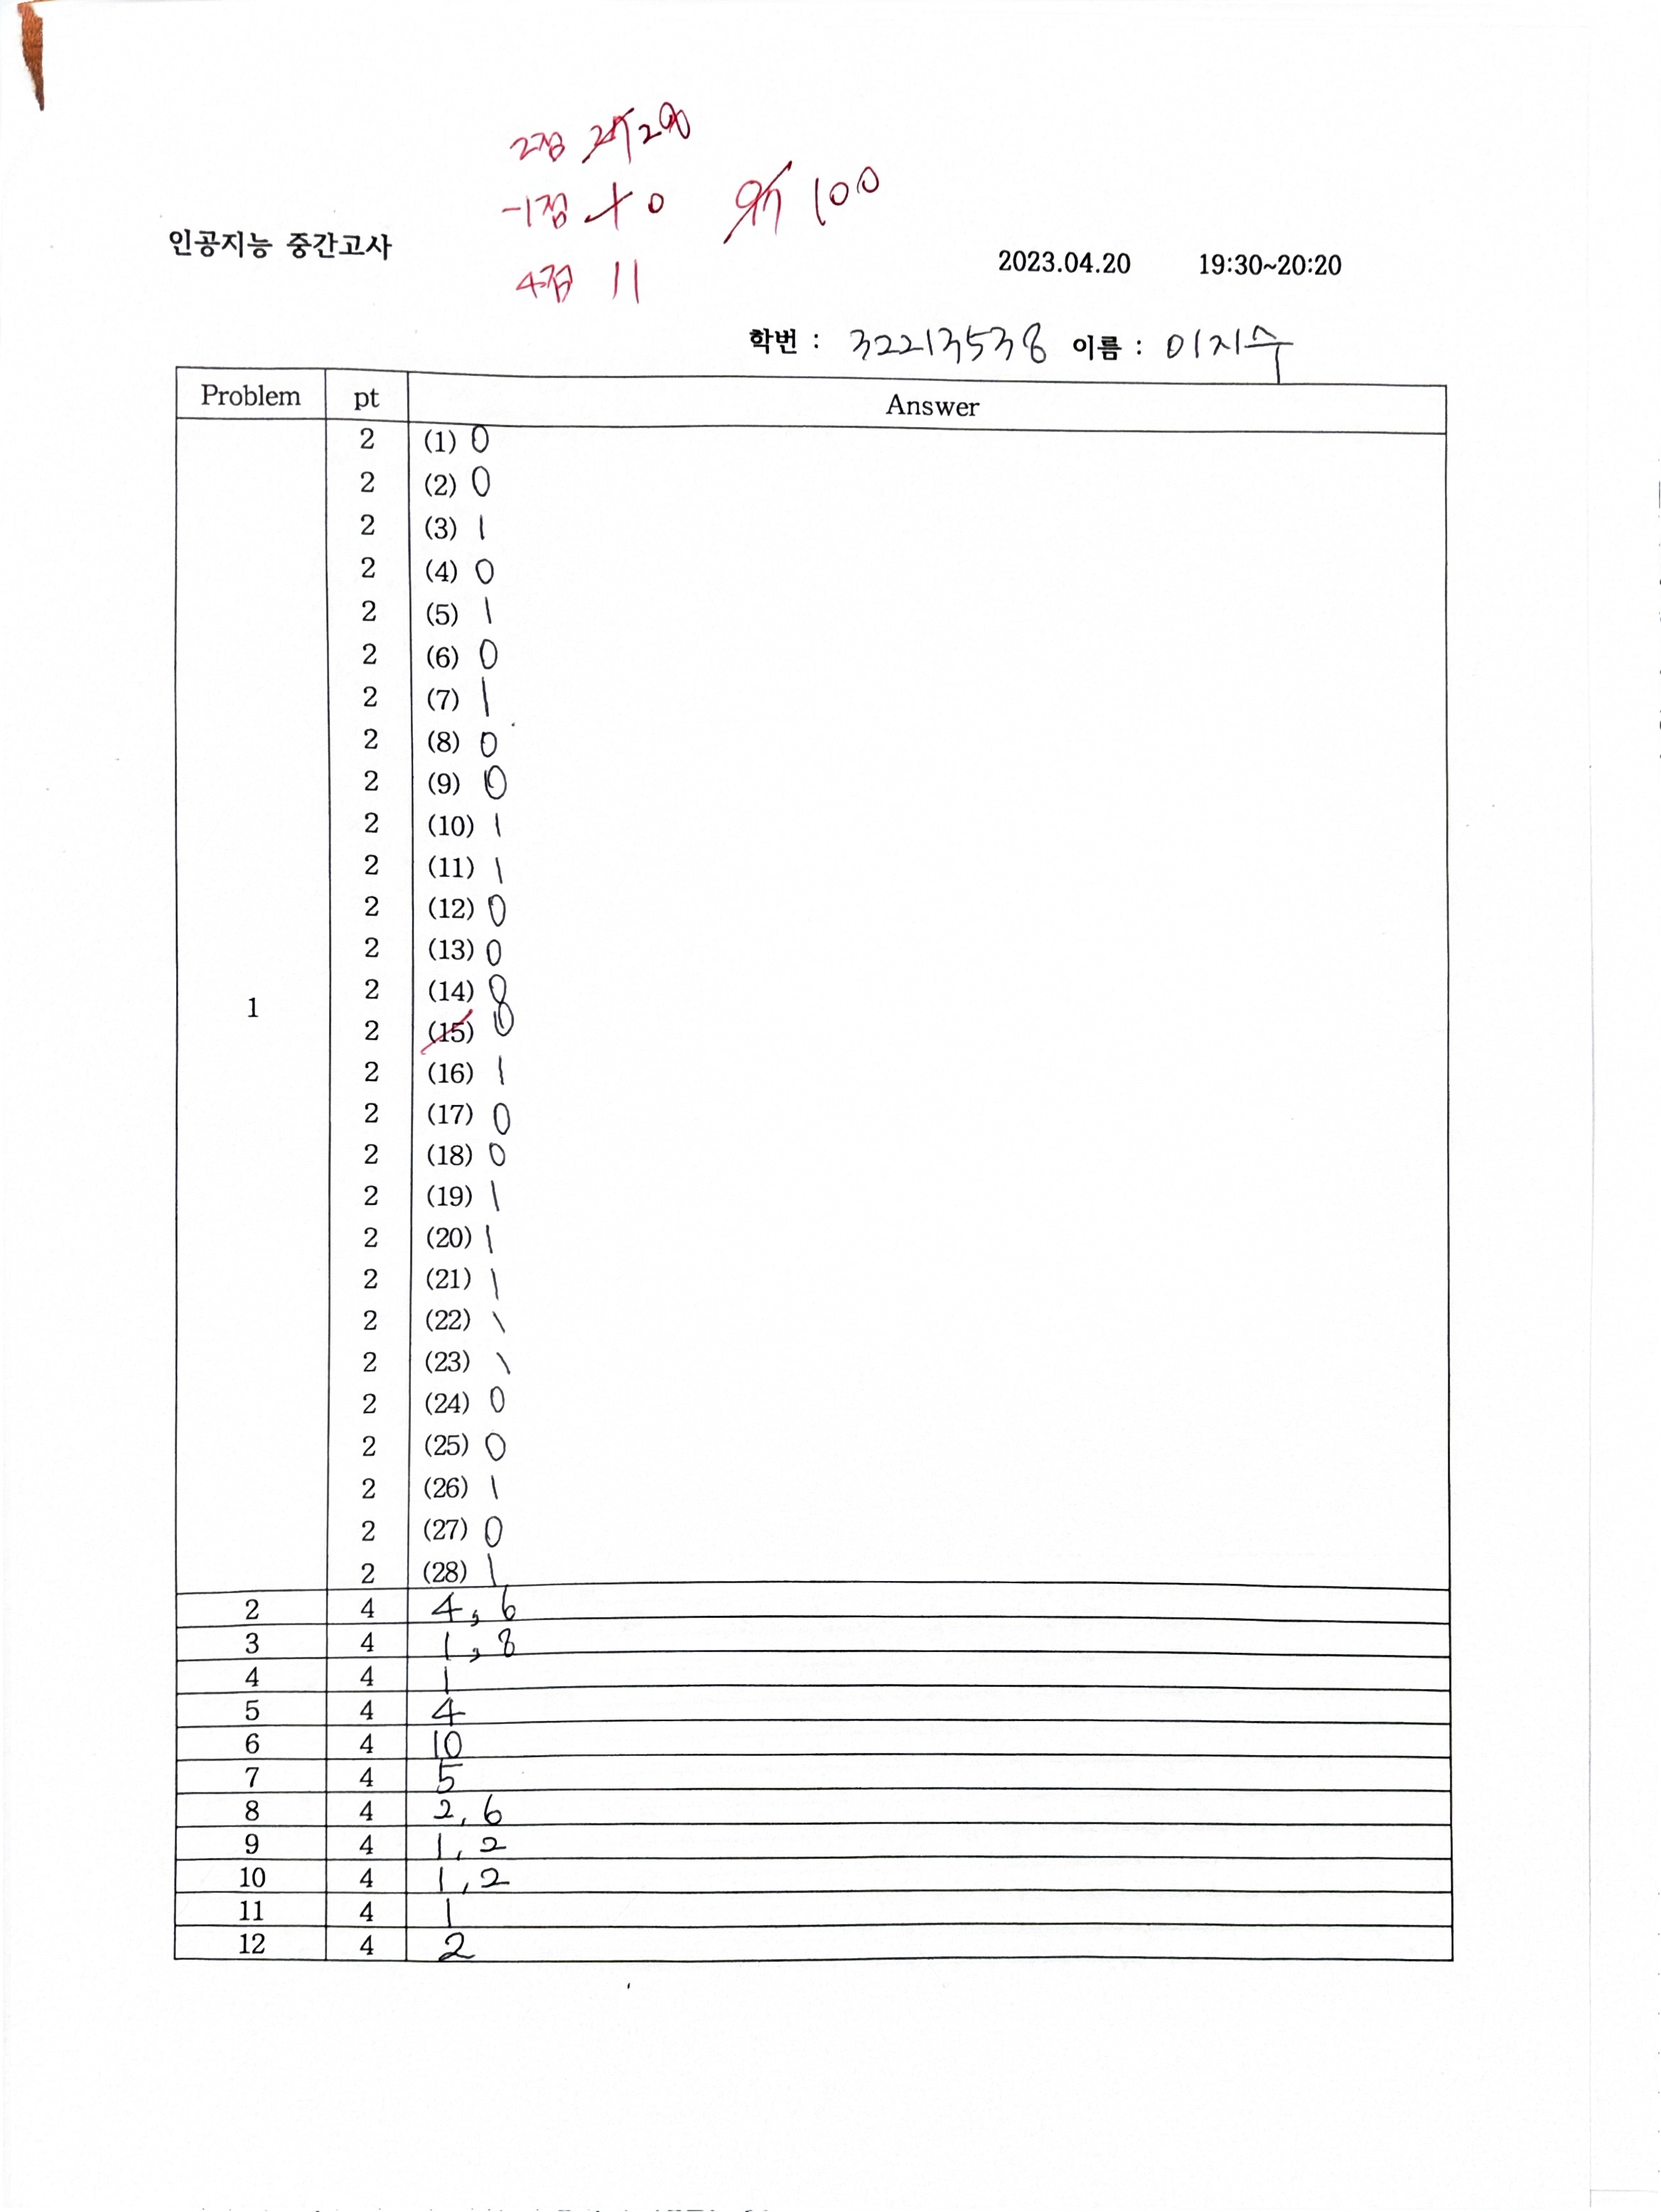 2점
-1점 0 100
인공지능 중간고사
4점 11
2023.04.20 19:30~20:20
학번 : 32213538 이름 : 이지수
Problem pt Answer
2 (1) 0
2 (2) 0
2 (3) 1
2 (4) 0
2 (5) 1
2 (6) 0
2 (7) 1
2 (8) 0
2 (9) 0
2 (10) 1
2 (11) 1
2 (12) 0
2 (13) 0
2 (14) 0
1
2 (15) 0
2 (16) 1
2 (17) 0
2 (18) 0
2 (19) 1
2 (20) 1
2 (21) 1
2 (22) 1
2 (23) 1
2 (24) 0
2 (25) 0
2 (26) 1
2 (27) 0
2 (28) 1
2 4 4, 6
3 4 1, 8
4 4 1
5 4 4
6 4 10
7 4 5
8 4 2, 6
9 4 1, 2
10 4 1, 2
11 4 1
12 4 2